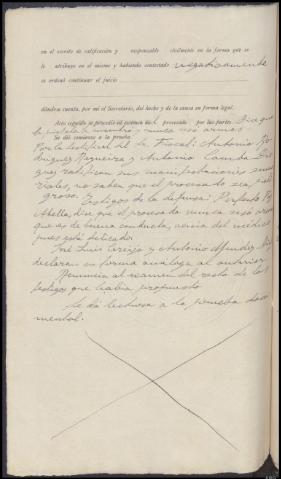 en el escrito de calificación y responsable civilmente en la forma que se
le atribuye en el mismo y habiendo contestado negativamente
se ordenó continuar el juicio
dándose cuenta, por mí el Secretario, del hecho y de la causa en forma legal.
Acto seguido se procedió al examen del procesado por las partes. Dice que
y nunca usó armas
Se dió comienzo a la prueba
Por la testifical del Sr. Fiscal: Antonio Ro-
driguez Nogueira y Antonio
ratifican sus manifestaciones
no saben que el procesado sea peli-
groso.
Testigos de la defensa: Perfecto
dice que el procesado nunca usó armas
que es de buena conducta,
pues está delicado.
José Luis Crespo y Antonio Mendez
declaran en forma análoga al anterior
Renuncia al examen del resto de los
testigos que había propuesto
Se dá lectura a la prueba docu-
mental.